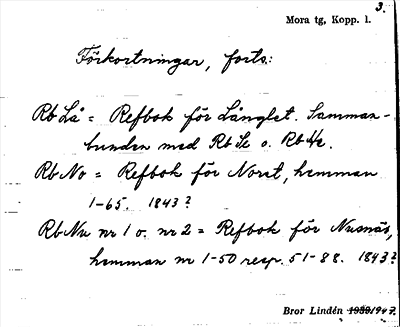 3.
Mora tg, Kopp. l.
Förkortningar, forts.:
Rb Lå = Refbok för Långlet. Samman-
bunden med Rb Se o. Rb
Rb No = Refbok för Noret, hemman
1-65. 1843?
Rb Nu nr 1 o. nr 2 = Refbok för Nusnäs,
hemman nr 1-50 resp. 51-88. 1843?
Bror Lindén 1947.